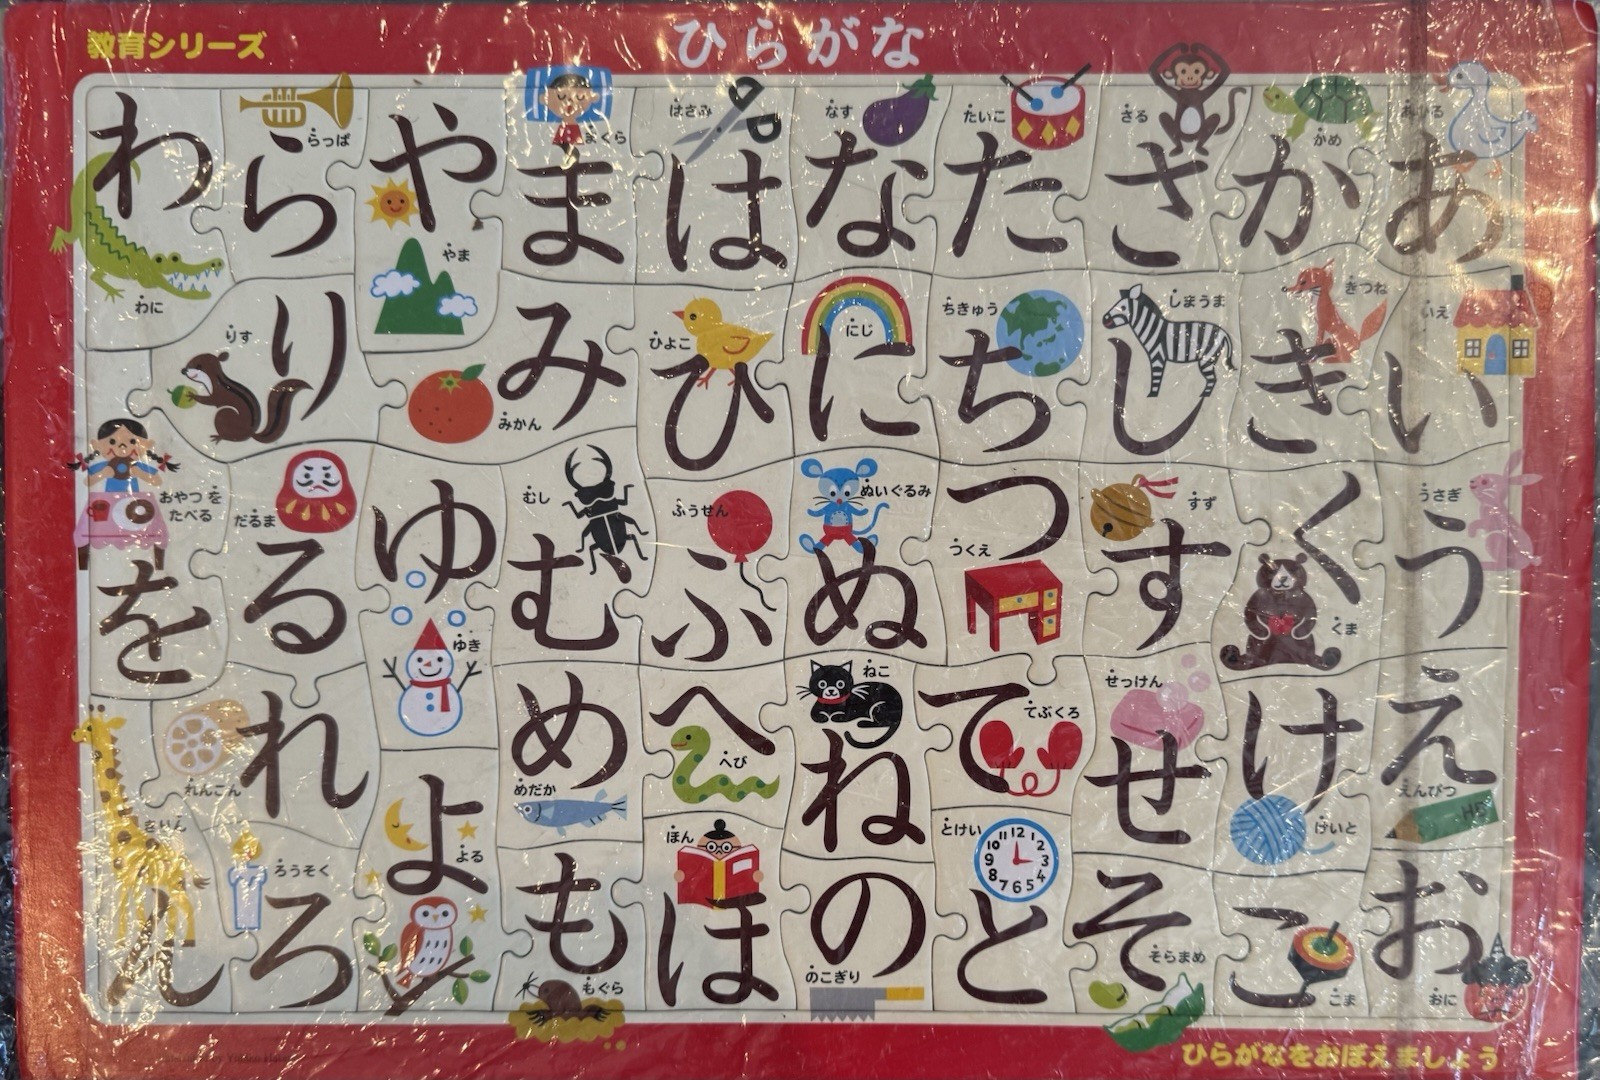 教育シリーズ
ひらがな
あ
あひる
い
いえ
う
うさぎ
え
えんぴつ
HB
お
おに
か
かめ
き
きつね
く
くま
け
けいと
こ
こま
さ
さる
し
しまうま
す
すず
せ
せっけん
そ
そらまめ
た
たいこ
ち
ちきゅう
つ
つくえ
て
てぶくろ
と
とけい
12
1
2
3
4
5
6
7
8
9
10
11
な
なす
に
にじ
ぬ
ぬいぐるみ
ね
ねこ
の
のこぎり
は
はさみ
ひ
ひよこ
ふ
ふうせん
へ
へび
ほ
ほん
ま
まくら
み
みかん
む
むし
め
めだか
も
もぐら
や
やま
ゆ
ゆき
よ
よる
ら
らっぱ
り
りす
る
だるま
れ
れんこん
ろ
ろうそく
わ
わに
を
おやつ を
たべる
ん
きりん
ひらがなをおぼえましょう